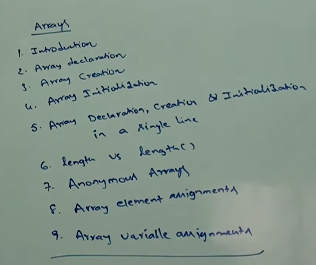 Arrays
1. Introduction
2. Array declaration
3. Array Creation
4. Array Initialization
5. Array Declaration, Creation & Initialization
in a single line
6. length vs length()
7. Anonymous Arrays
8. Array element assignments
9. Array variable assignments